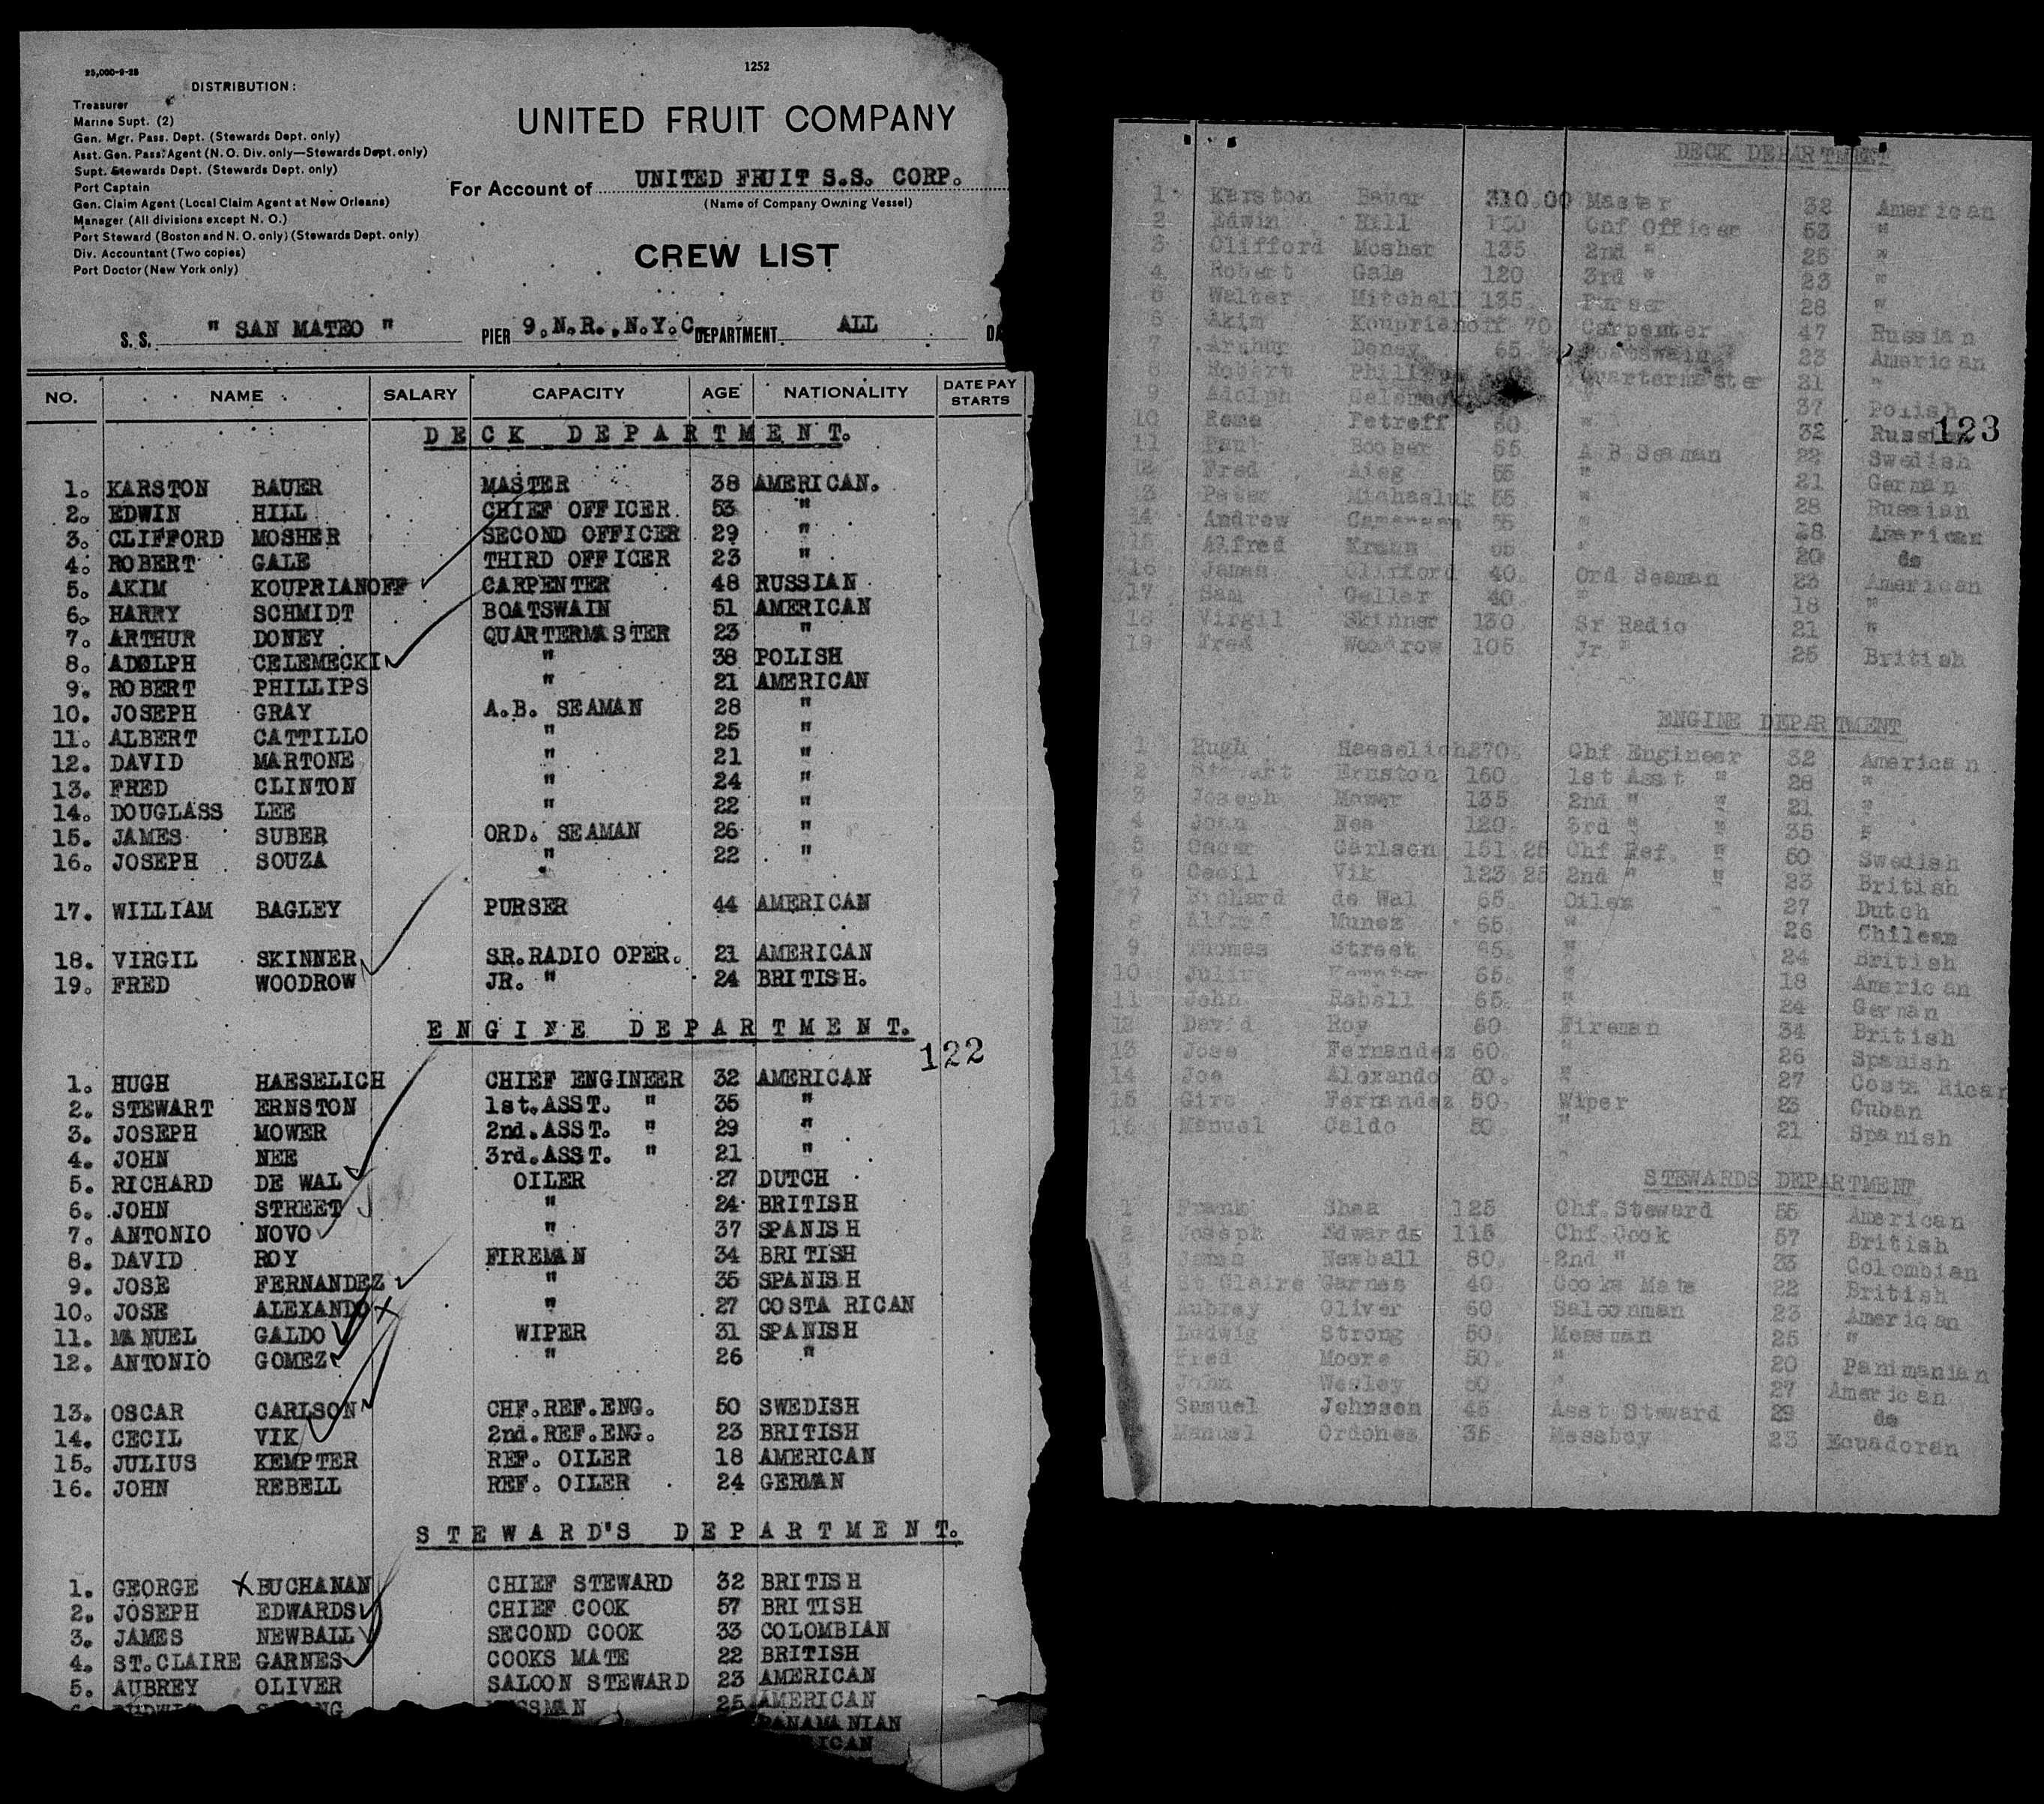 25,000-9-28
1252
DISTRIBUTION:
Treasurer
Marine Supt. (2)
Gen. Mgr. Pass. Dept. (Stewards Dept. only)
Asst. Gen. Pass. Agent (N. O. Div. only—Stewards Dept. only)
Supt. Stewards Dept. (Stewards Dept. only)
Port Captain
Gen. Claim Agent (Local Claim Agent at New Orleans)
Manager (All divisions except N. O.)
Port Steward (Boston and N. O. only) (Stewards Dept. only)
Div. Accountant (Two copies)
Port Doctor (New York only)
UNITED FRUIT COMPANY
For Account of UNITED FRUIT S.S. CORP.
(Name of Company Owning Vessel)
CREW LIST
S. S. " SAN MATEO " PIER 9.N.R..N.Y.C. DEPARTMENT ALL DA
NO. NAME SALARY CAPACITY AGE NATIONALITY DATE PAY STARTS
DECK DEPARTMENT.
1. KARSTON BAUER MASTER 38 AMERICAN.
2. EDWIN HILL CHIEF OFFICER. 53 "
3. CLIFFORD MOSHER SECOND OFFICER 29 "
4. ROBERT GALE THIRD OFFICER 23 "
5. AKIM KOUPRIANOFF CARPENTER 48 RUSSIAN
6. HARRY SCHMIDT BOATSWAIN 51 AMERICAN
7. ARTHUR DONEY QUARTERMASTER 23 "
8. ADOLPH CELEMECKI " 38 POLISH
9. ROBERT PHILLIPS " 21 AMERICAN
10. JOSEPH GRAY A.B. SEAMAN 28 "
11. ALBERT CATTILLO " 25 "
12. DAVID MARTONE " 21 "
13. FRED CLINTON " 24 "
14. DOUGLASS LEE " 22 "
15. JAMES SUBER ORD. SEAMAN 26 "
16. JOSEPH SOUZA " 22 "
17. WILLIAM BAGLEY PURSER 44 AMERICAN
18. VIRGIL SKINNER SR.RADIO OPER. 21 AMERICAN
19. FRED WOODROW JR. " 24 BRITISH.
ENGINE DEPARTMENT.
122
1. HUGH HAESELICH CHIEF ENGINEER 32 AMERICAN
2. STEWART ERNSTON 1st.ASST. " 35 "
3. JOSEPH MOWER 2nd.ASST. " 29 "
4. JOHN NEE 3rd.ASST. " 21 "
5. RICHARD DE WAL OILER 27 DUTCH
6. JOHN STREET " 24 BRITISH
7. ANTONIO NOVO " 37 SPANISH
8. DAVID ROY FIREMAN 34 BRITISH
9. JOSE FERNANDEZ " 35 SPANISH
10. JOSE ALEXANDO " 27 COSTA RICAN
11. MANUEL GALDO WIPER 31 SPANISH
12. ANTONIO GOMEZ " 26 "
13. OSCAR CARLSON CHF.REF.ENG. 50 SWEDISH
14. CECIL VIK 2nd.REF.ENG. 23 BRITISH
15. JULIUS KEMPTER REF. OILER 18 AMERICAN
16. JOHN REBELL REF. OILER 24 GERMAN
STEWARD'S DEPARTMENT.
1. GEORGE BUCHANAN CHIEF STEWARD 32 BRITISH
2. JOSEPH EDWARDS CHIEF COOK 57 BRITISH
3. JAMES NEWBALL SECOND COOK 33 COLOMBIAN
4. ST.CLAIRE GARNES COOKS MATE 22 BRITISH
5. AUBREY OLIVER SALOON STEWARD 23 AMERICAN
25 AMERICAN
PANAMANIAN
DECK DEPARTMENT
1 Karston Bauer 310.00 Master 32 American
2 Edwin Hill Chf Officer 53 "
3 Clifford Mosher 135 2nd " 25 "
4 Robert Gale 120 3rd " 23 "
5 Walter Mitchell 135 Purser 28 "
6 Akim Kouprianoff 70 Carpenter 47 Russian
7 Arthur Doney 65 Boatswain 23 American
8 Robert Phillips Quartermaster 21 "
9 Adolph " 37 Polish
10 Petreff 60 " 32 Russian
123
11 Paul Boober 55 A B Seaman 22 Swedish
12 Fred Aieg 55 " 21 German
13 Peter Michasluk 55 " 28 Russian
14 Andrew 55 " 28 American
15 Alfred " 20 do
16 James Clifford 40 Ord Seaman 23 American
17 Sam Geller 40 " 18 "
18 Virgil Skinner 130 Sr Radio 21 "
19 Fred Woodrow 105 Jr " 25 British
ENGINE DEPARTMENT
1 Hugh Haeselich 270. Chf Engineer 32 American
2 Stewart Ernston 160 1st Asst " 28 "
3 Joseph Mower 135 2nd " " 21 "
4 John Nee 120 3rd " " 35 "
5 Oscar Carlson 151 25 Chf Ref. " 50 Swedish
6 Cecil Vik 123 25 2nd " " 23 British
7 Richard de Wal 65 Oiler 27 Dutch
8 Alfred Munez 65 " 26 Chilean
9 Thomas Street 65. " 24 British
10 Kempter 65. " 18 American
11 John Rebell 65. " 24 German
12 David Roy 60 Fireman 34 British
13 Jose Fernandez 60. " 26 Spanish
14 Joe Alexando 60. " 27 Costa Rican
15 Giro Fernandez 50. Wiper 23 Cuban
16 Manuel Caldo 50 " 21 Spanish
STEWARDS DEPARTMENT
1 Frank Shea 125 Chf. Steward 55 American
2 Joseph Edwards 115 Chf. Cook 57 British
3 James Newball 80. 2nd " 33 Colombian
4 St Claire Garnes 40. Cooks Mate 22 British
Aubrey Oliver 60 Saloonman 23 American
Ludwig Strong 50. Messman 25 "
Fred Moore 50. " 20 Panimanian
John Wesley 50 " 27 American
Samuel Johnson 45 Asst Steward 29 do
Manuel Ordones 35. Messboy 23 Ecuadoran